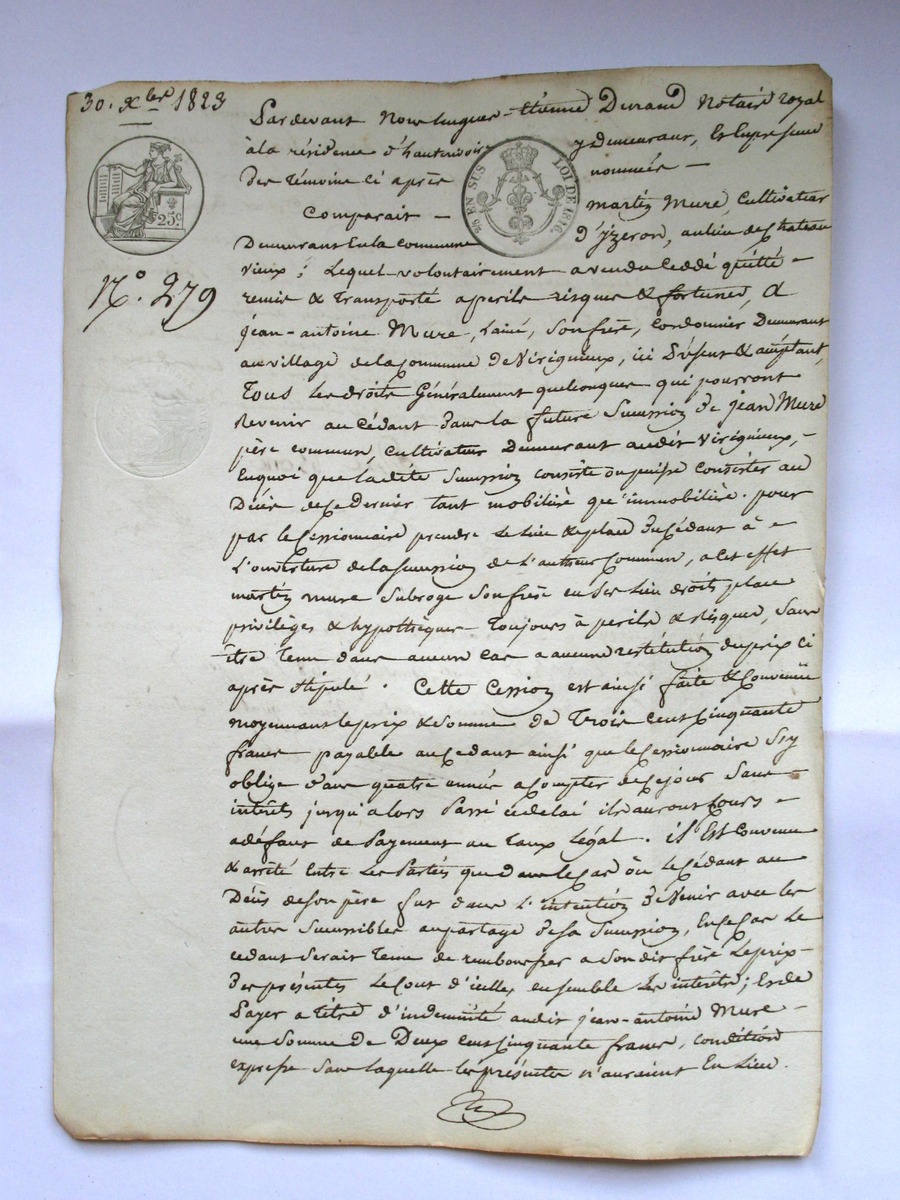 30. Xbre 1823
Pardevant Nous hugues-Etienne Durand Notaire royal
à la résidence d'hauterivoire y Demeurant, Et En presence
Des Témoins Ci après nommés —
Comparait — martin Mure, Cultivateur
Demeurant En la Commune D'yzeron, au lieu de Chateau
vieux; Lequel volontairement a vendu Ceddé quitté
remis & Transporté a perils risques & fortunes, A
jean-antoine Mure, Lainé, Son frère, Cordonnier Demeurant
au village de la Commune de Virigneux, ici Présent & acceptant,
Tous Les droits Généralement quelconques qui pourront
Revenir au Cédant Dans la future Succession de jean Mure
père commun, Cultivateur Demeurant audit Virigneux, -
En quoi que la dite Succession consiste ou puisse Consister au
Décès de Ce Dernier tant mobilière qu'immobilière. pour
par le Cessionnaire prendre Le Lieu & place Du Cédant à
L'ouverture de la Succession de L'auteur Commun, a Cet effet
martin mure Subroge Son frère en Ses Lieu droits place
privilèges & hypothèques Toujours à perils & risques, Sans
être Tenu dans aucun Cas a aucune restitution du prix Ci
après Stipulé. Cette Cession est ainsi faite & Convenue
moyennant le prix & Somme de Trois Cent Cinquante
francs payable au Cédant ainsi que le Cessionnaire S'y
oblige dans quatre années a Compter de Ce jour Sans
intérêts jusqu'alors Passé ce delai ils auront Cours
a défaut de Payement au Taux Légal. il Est Convenu
& arrêté Entre Les Parties que dans le Cas où Le Cédant au
Décès de Son père fut dans L'intention de Venir avec les
autres Successibles au partage de Sa Succession, En Ce Cas Le
cedant Serait Tenu de rembourser a Son dit frère Le prix
Des présentes Le Cout d'icelles, ensemble Les intérêts; Et de
Payer a Titre d'indemnité audit jean-antoine Mure
une Somme de Deux Cent Cinquante francs, condition
expresse Sans laquelle les présentes n'auraient Eu Lieu.
25 C.
25 EN SUS
LOI DE 1816.
N.° 279